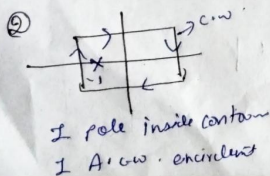 ②
C.W.
-1
1 pole inside contour
1 A.C.W. encirclement